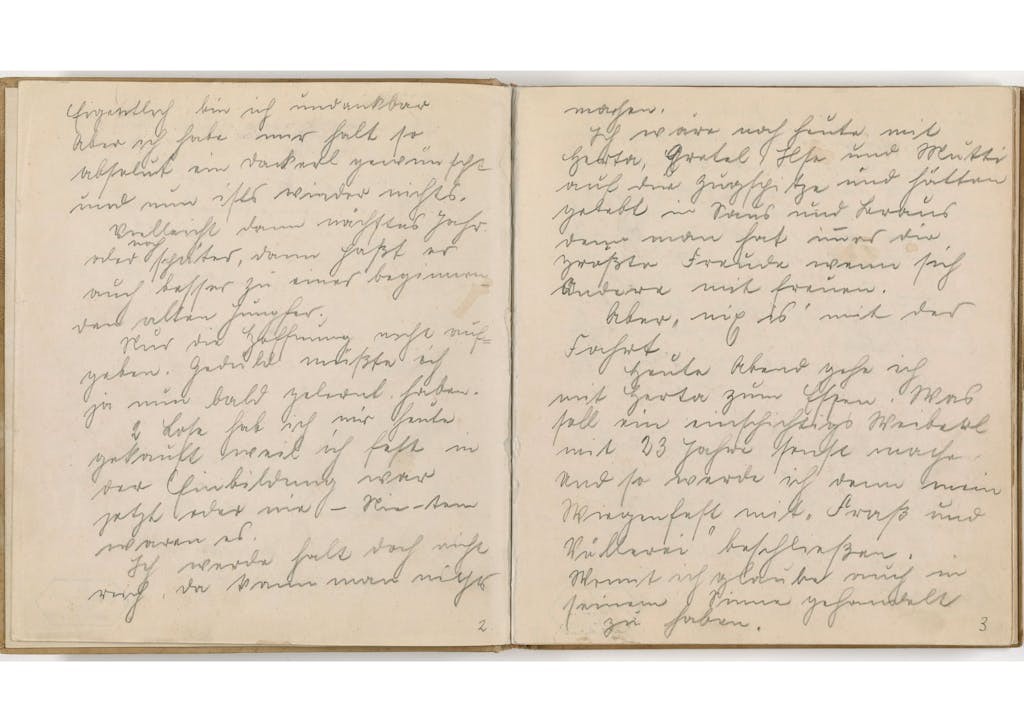 Eigentlich bin ich undankbar
Aber ich habe mir halt so
absolut ein Dackerl gewünscht
und nun ists wieder nichts.
Vielleicht dann nächstes Jahr
oder noch später, dann paßt er
auch besser zu einer beginnen
den alten Jungfer.
Nur die Hoffnung nicht auf-
geben. Geduld müßte ich
ja nun bald gelernt haben.
2 Lose hab ich mir heute
gekauft weil ich fest in
der Einbildung war
jetzt oder nie – Nie-ten
waren es.
Ich werde halt doch nicht
reich, da kann man nichts
2
machen.
Ich wäre noch heute mit
Herta, Gretel, Ilse und Mutti
auf die Zugspitze und hätten
gelebt in Saus und Braus
denn man hat immer die
größte Freude wenn sich
Andere mit freuen.
Aber „nix is" mit der
Fahrt.
Heute Abend gehe ich
mit Herta zum Essen. Was
soll ein einschichtigs Weiberl
mit 23 Jahre sonst mache
und so werde ich denn mein
Wiegenfest mit „Fraß und
Völlerei" beschließen.
Womit ich glaube auch in
seinem Sinne gehandelt
zu haben.
3